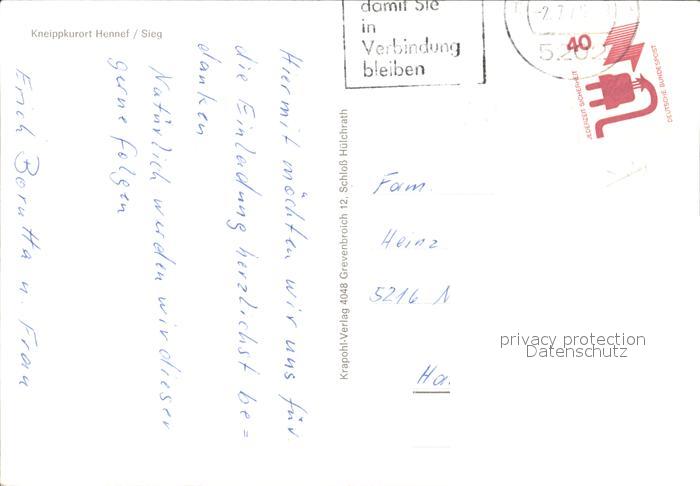 Kneippkurort Hennef / Sieg
Hiermit möchten wir uns für
die Einladung herzlichst be=
danken
Natürlich würden wir dieser
gerne folgen
Erich Borutta u. Frau
Krapohl-Verlag 4048 Grevenbroich 12, Schloß Hülchrath
damit Sie
in
Verbindung
bleiben
5202
40
JEDERZEIT SICHERHEIT
DEUTSCHE BUNDESPOST
Fam.
Heinz
5216 N
Ha.
privacy protection
Datenschutz